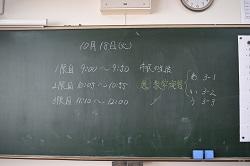 10月18日(火)
1限目 9:00～9:50 市民の生活
2限目 10:05～10:55 選 数学演習 あ 3-1
い 3-2
3限目 11:10～12:00 う 3-3